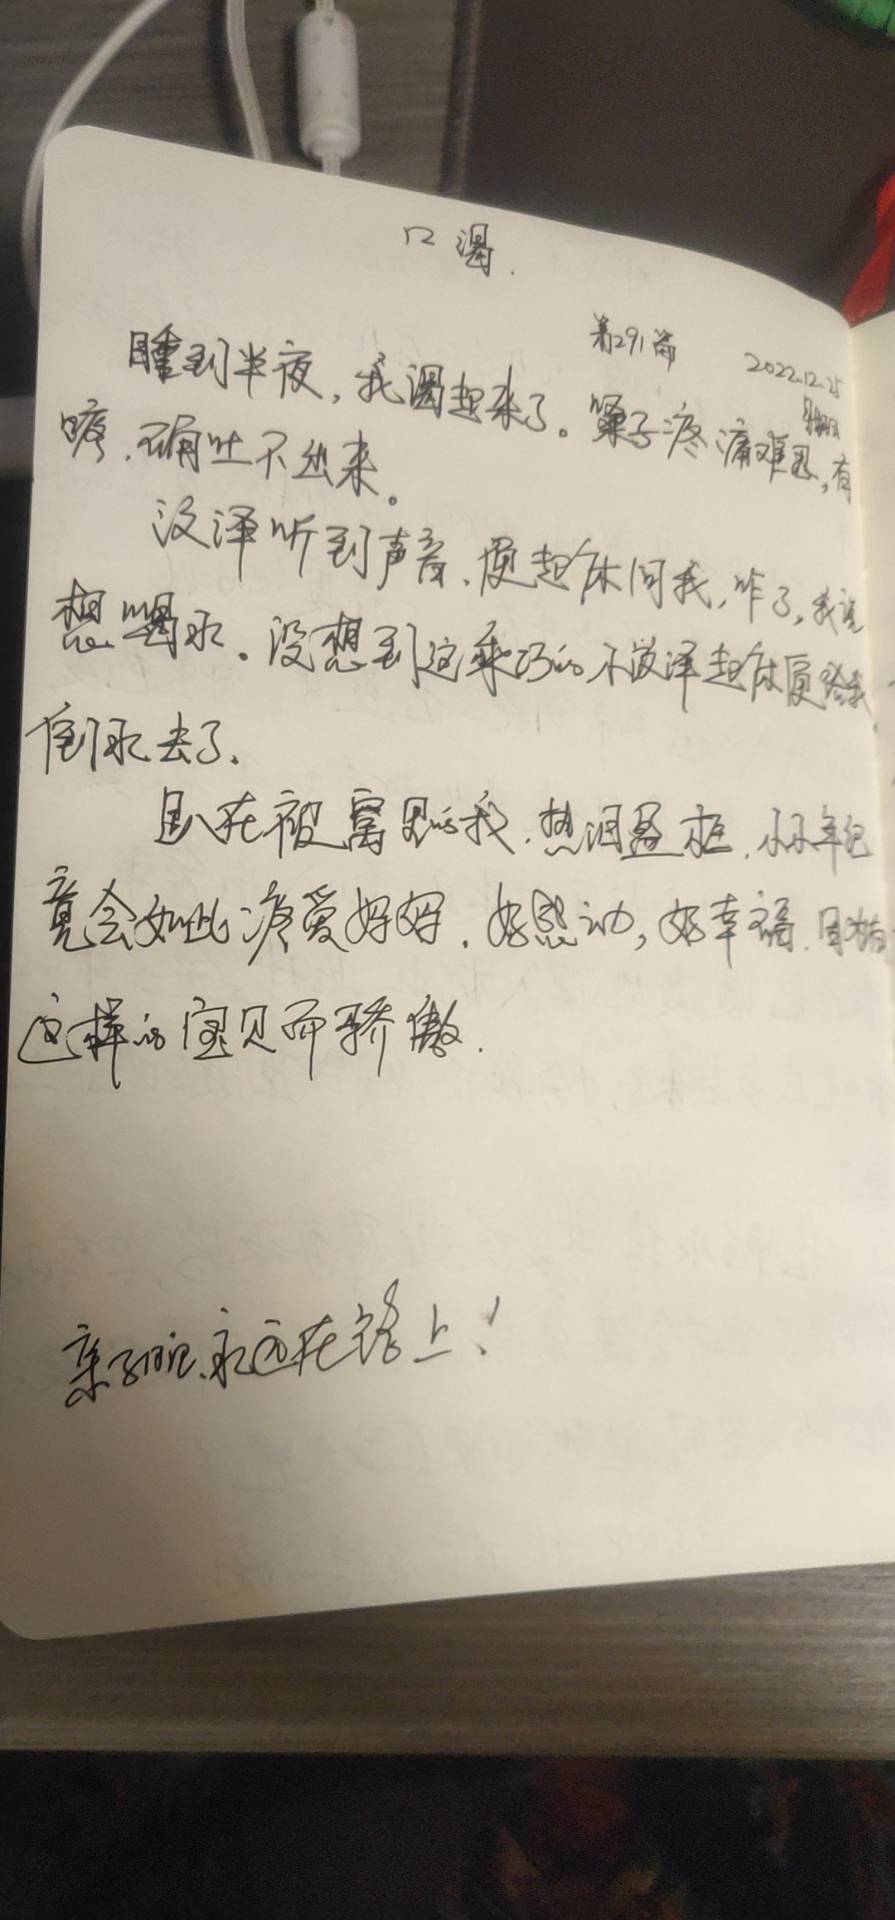 口渴.
第291篇 2022.12.25
睡到半夜，我渴起来了。嗓子疼痛难忍，有
咳，确吐不出来。
汉泽听到声音，便起床问我，咋了，我说
想喝水。没想到这乖巧的小汉泽起床便给我
倒水去了.
趴在被窝里的我，热泪盈框，小小年纪
竟会如此疼爱妈妈，好感动，好幸福.因有
这样的宝贝而骄傲.
亲子日记，永远在路上！